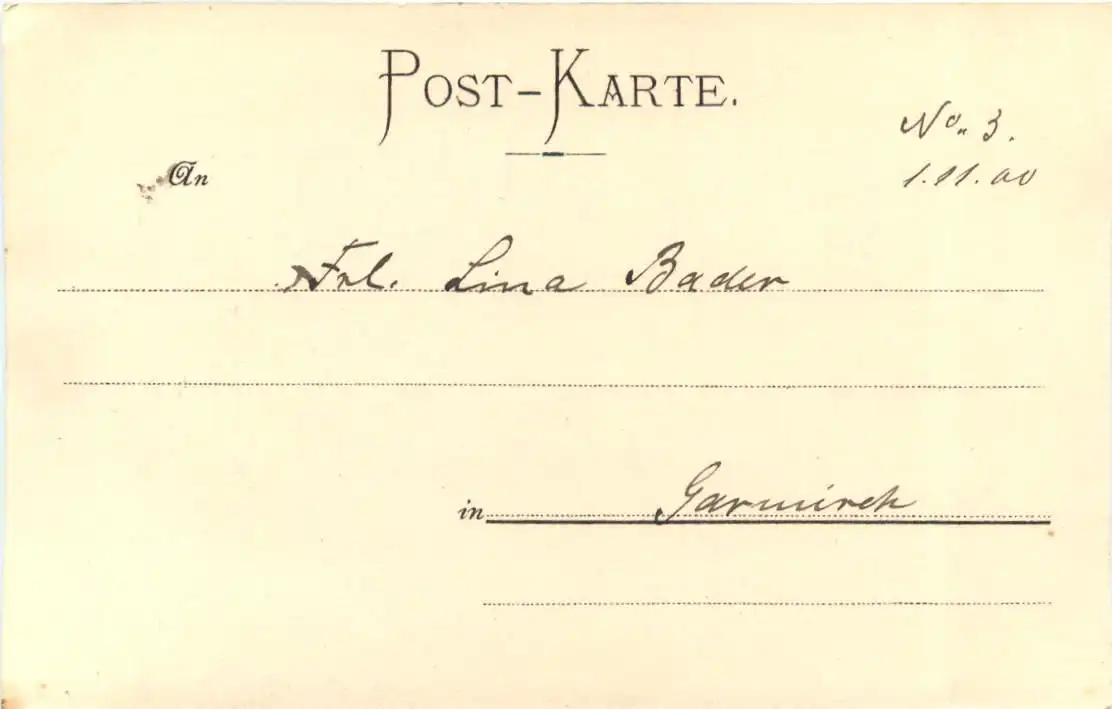 POST-KARTE.
No. 3.
1.11.00
An
Frl. Lina Bader
in Garmisch